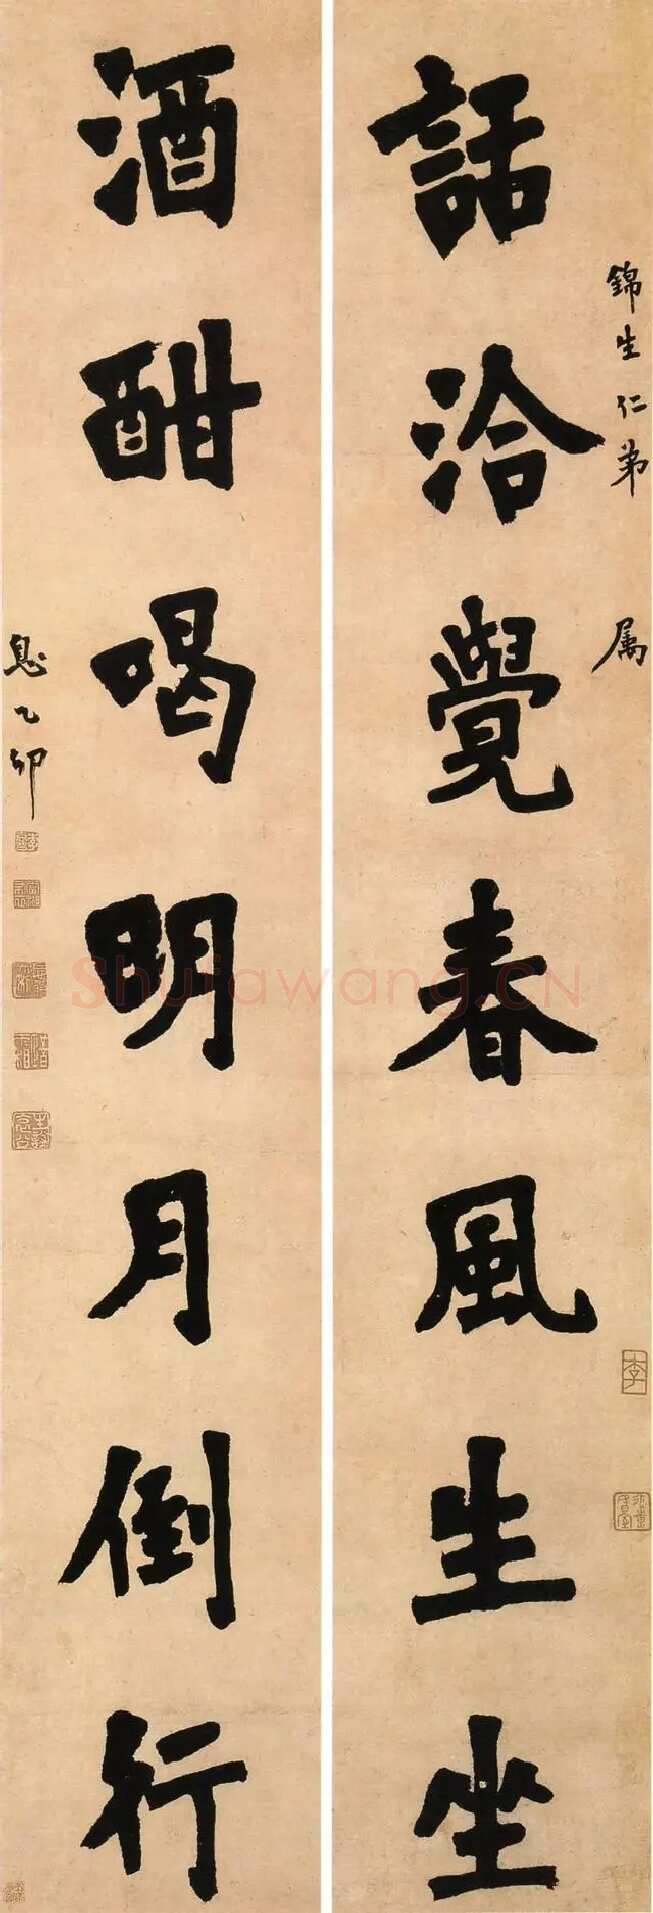 錦生仁弟 属
話洽覺春風生坐
酒酣喝明月倒行
息乙卯
李
Shufawang.CN